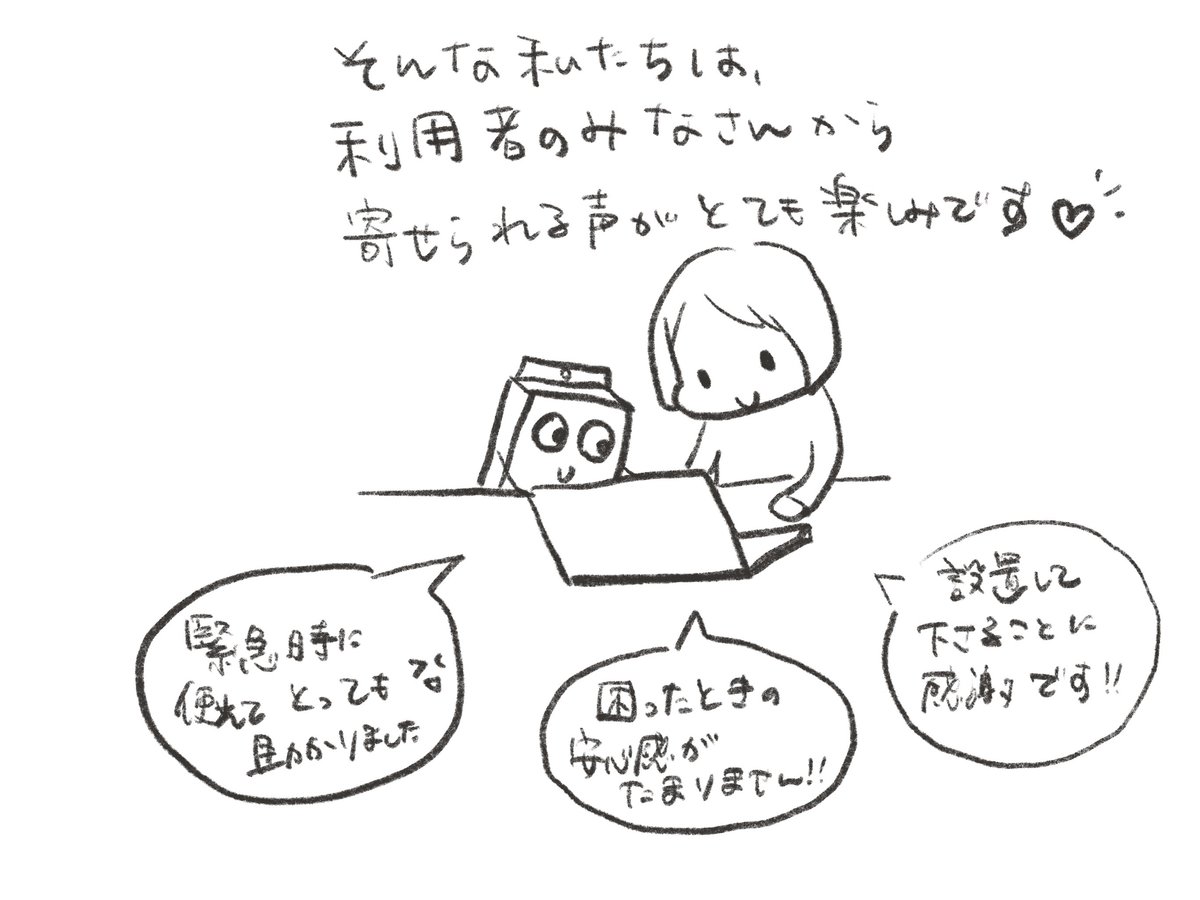 そんな私たちは、
利用者のみなさんから
寄せられる声がとても楽しみです♡
緊急時に
使れてとってもな
助かりました
困ったときの
安心感が
たまりません!!
設置して
下さることに
感謝です!!